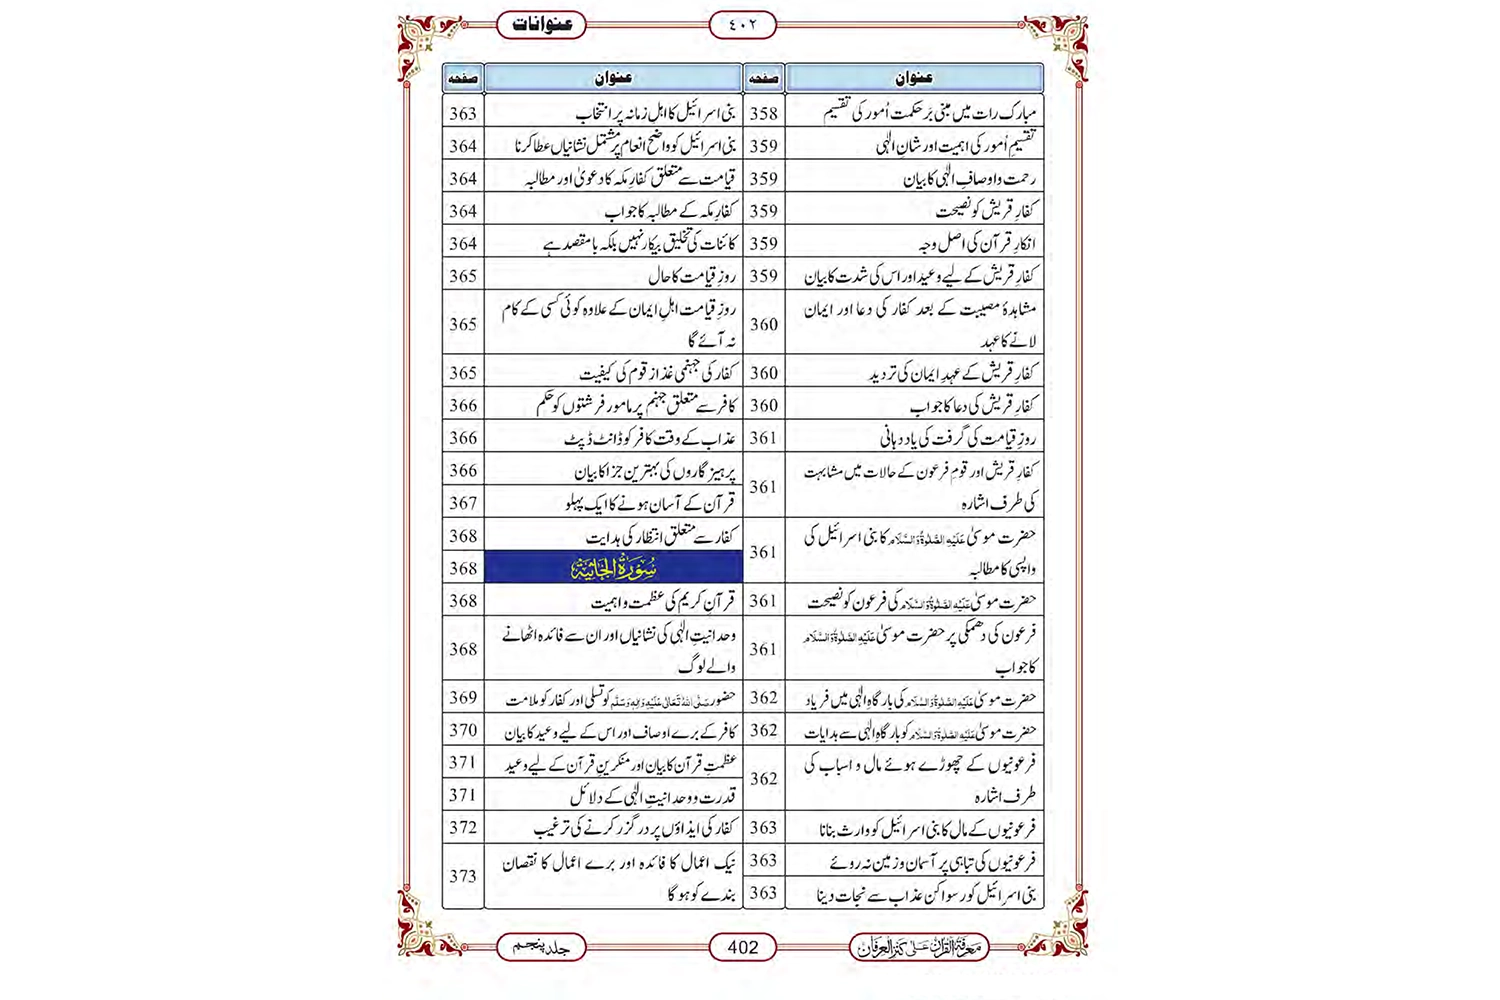 عنوانات
٤٠٢
عنوان صفحہ
مبارک رات میں مبنی بَر حکمت اُمور کی تقسیم 358
تقسیمِ اُمور کی اہمیت اور شانِ الٰہی 359
رحمت و اوصافِ الٰہی کا بیان 359
کفارِ قریش کو نصیحت 359
انکارِ قرآن کی اصل وجہ 359
کفارِ قریش کے لیے وعید اور اس کی شدت کا بیان 359
مشاہدۂ مصیبت کے بعد کفار کی دعا اور ایمان
لانے کا عہد 360
کفارِ قریش کے عہدِ ایمان کی تردید 360
کفارِ قریش کی دعا کا جواب 360
روزِ قیامت کی گرفت کی یاد دہانی 361
کفارِ قریش اور قومِ فرعون کے حالات میں مشابہت
کی طرف اشارہ 361
حضرت موسیٰ عَلَیْہِ الصَّلٰوۃُ وَالسَّلَام کا بنی اسرائیل کی
واپسی کا مطالبہ 361
حضرت موسیٰ عَلَیْہِ الصَّلٰوۃُ وَالسَّلَام کی فرعون کو نصیحت 361
فرعون کی دھمکی پر حضرت موسیٰ عَلَیْہِ الصَّلٰوۃُ وَالسَّلَام
کا جواب 361
حضرت موسیٰ عَلَیْہِ الصَّلٰوۃُ وَالسَّلَام کی بارگاہِ الٰہی میں فریاد 362
حضرت موسیٰ عَلَیْہِ الصَّلٰوۃُ وَالسَّلَام کو بارگاہِ الٰہی سے ہدایات 362
فرعونیوں کے چھوڑے ہوئے مال و اسباب کی
طرف اشارہ 362
فرعونیوں کے مال کا بنی اسرائیل کو وارث بنانا 363
فرعونیوں کی تباہی پر آسمان و زمین نہ روئے 363
بنی اسرائیل کو رسوا کن عذاب سے نجات دینا 363
عنوان صفحہ
بنی اسرائیل کا اہلِ زمانہ پر انتخاب 363
بنی اسرائیل کو واضح انعام پر مشتمل نشانیاں عطا کرنا 364
قیامت سے متعلق کفارِ مکہ کا دعویٰ اور مطالبہ 364
کفارِ مکہ کے مطالبہ کا جواب 364
کائنات کی تخلیق بیکار نہیں بلکہ با مقصد ہے 364
روزِ قیامت کا حال 365
روزِ قیامت اہلِ ایمان کے علاوہ کوئی کسی کے کام
نہ آئے گا 365
کفار کی جہنمی غذا زقوم کی کیفیت 365
کافر سے متعلق جہنم پر مامور فرشتوں کو حکم 366
عذاب کے وقت کافر کو ڈانٹ ڈپٹ 366
پرہیز گاروں کی بہترین جزا کا بیان 366
قرآن کے آسان ہونے کا ایک پہلو 367
کفار سے متعلق انتظار کی ہدایت 368
سُوْرَۃُ الْجَاثِیَۃ 368
قرآنِ کریم کی عظمت و اہمیت 368
وحدانیتِ الٰہی کی نشانیاں اور ان سے فائدہ اٹھانے
والے لوگ 368
حضور صَلَّی اللہُ تَعَالٰی عَلَیْہِ وَاٰلِہٖ وَسَلَّم کو تسلی اور کفار کو ملامت 369
کافر کے برے اوصاف اور اس کے لیے وعید کا بیان 370
عظمتِ قرآن کا بیان اور منکرینِ قرآن کے لیے وعید 371
قدرت و وحدانیتِ الٰہی کے دلائل 371
کفار کی ایذاؤں پر درگزر کرنے کی ترغیب 372
نیک اعمال کا فائدہ اور برے اعمال کا نقصان
بندے کو ہو گا 373
معرفۃ القرآن علیٰ کنز العرفان
402
جلد پنجم